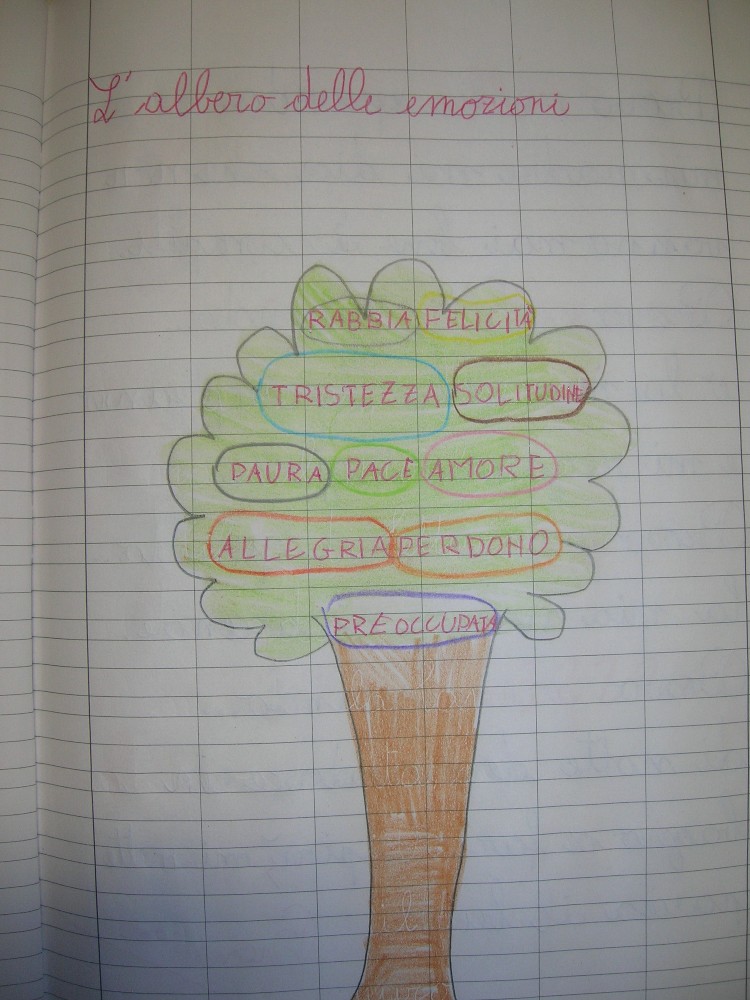 L'albero delle emozioni
RABBIA FELICITÀ
TRISTEZZA SOLITUDINE
PAURA PACE AMORE
ALLEGRIA PERDONO
PREOCCUPATA